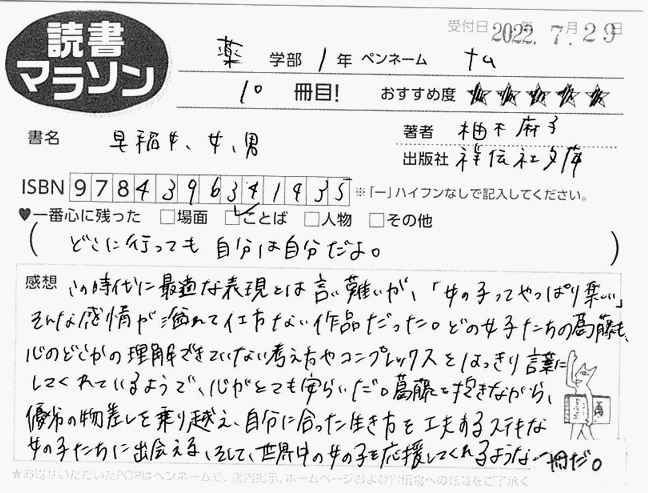 読書
マラソン
受付日 2022年7月29日
薬 学部 1年 ペンネーム ta
10 冊目! おすすめ度 ★★★★★
書名 早稲女、女、男
著者 柚木麻子
出版社 祥伝社文庫
ISBN 9784396341435 ※「ー」ハイフンなしで記入してください。
♥一番心に残った □場面 ☑ことば □人物 □その他
(どこに行っても自分は自分だよ。)
感想 この時代に最適な表現とは言い難いが、「女の子ってやっぱり楽しい」
そんな感情が溢れて仕方ない作品だった。どの女子たちの葛藤も、
心のどこかの理解できていない考え方やコンプレックスをはっきり言葉に
してくれているようで、心がとても安らいだ。葛藤を抱きながら、
優劣の物差しを乗り越え、自分に合った生き方を工夫するステキな
女の子たちに出会える、そして、世界中の女の子を応援してくれるような一冊だ。
★お寄せいただいたPOPはペンネームで、店内掲示、ホームページおよび